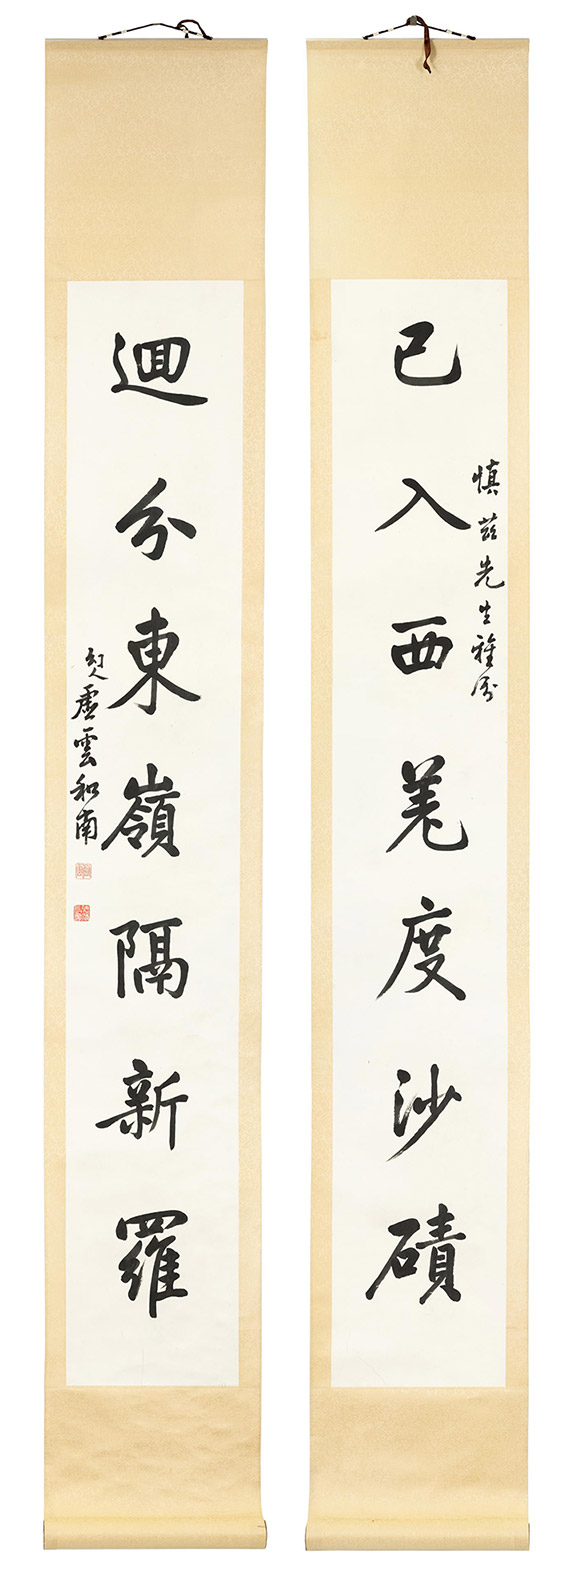 已入西羌度沙磧
慎茲先生雅属
迴分東嶺隔新羅
幻人虛雲和南